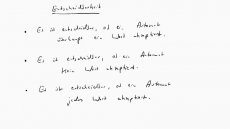 Entscheidbarkeit
• Es ist entscheidbar, ob ein Automat
überhaupt ein Wort akzeptiert.
• Es ist entscheidbar, ob ein Automat
kein Wort akzeptiert.
• Es ist entscheidbar, ob ein Automat
jedes Wort akzeptiert.